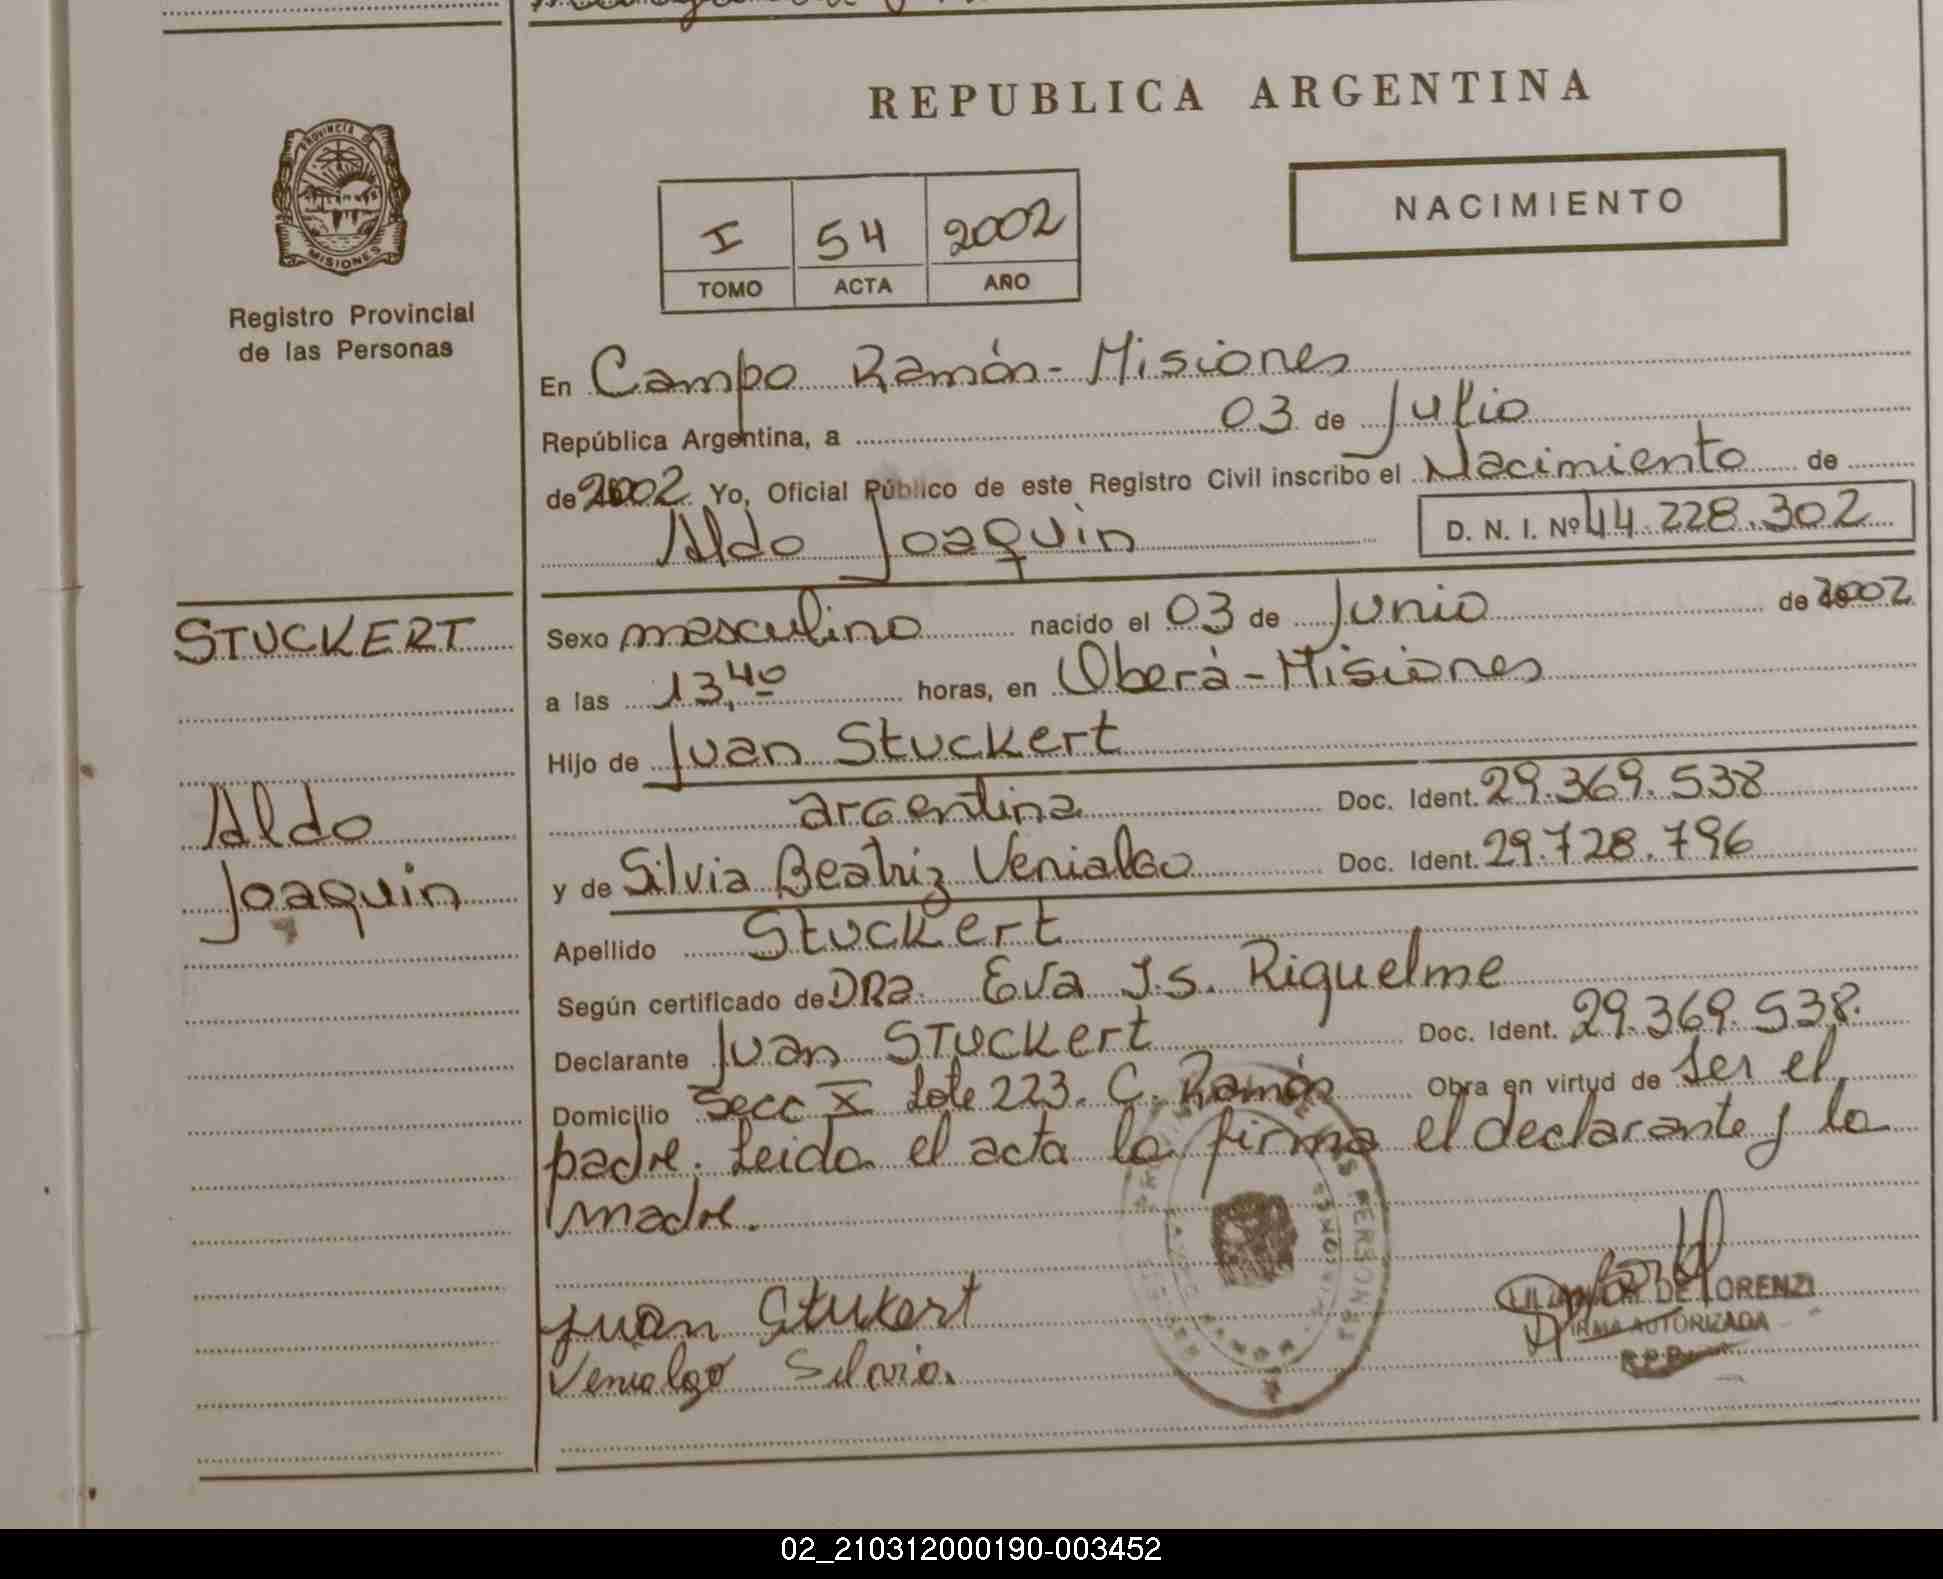 REPUBLICA ARGENTINA
PROVINCIA DE
MISIONES
Registro Provincial
de las Personas
I 54 2002
TOMO ACTA AÑO
NACIMIENTO
En Campo Ramón - Misiones
República Argentina, a 03 de Julio
de 2002 Yo, Oficial Público de este Registro Civil inscribo el Nacimiento de
Aldo Joaquin D. N. I. Nº 44.228.302
STUCKERT
Aldo
Joaquin
Sexo masculino nacido el 03 de Junio de 2002
a las 13,40 horas, en Oberá - Misiones
Hijo de Juan Stuckert
argentina Doc. Ident. 29.369.538
y de Silvia Beatriz Venialgo Doc. Ident. 29.728.796
Apellido Stuckert
Según certificado de DRa. Eva I.s. Riquelme
Declarante Juan STuckert Doc. Ident. 29.369.538.
Domicilio Secc X Lote 223. C. Ramón Obra en virtud de ser el
padre. Leida el acta la firma el declarante y la
madre.
Juan Stukert
Venialgo Silvia.
DE LORENZI
FIRMA AUTORIZADA
R.P.P.
02_210312000190-003452